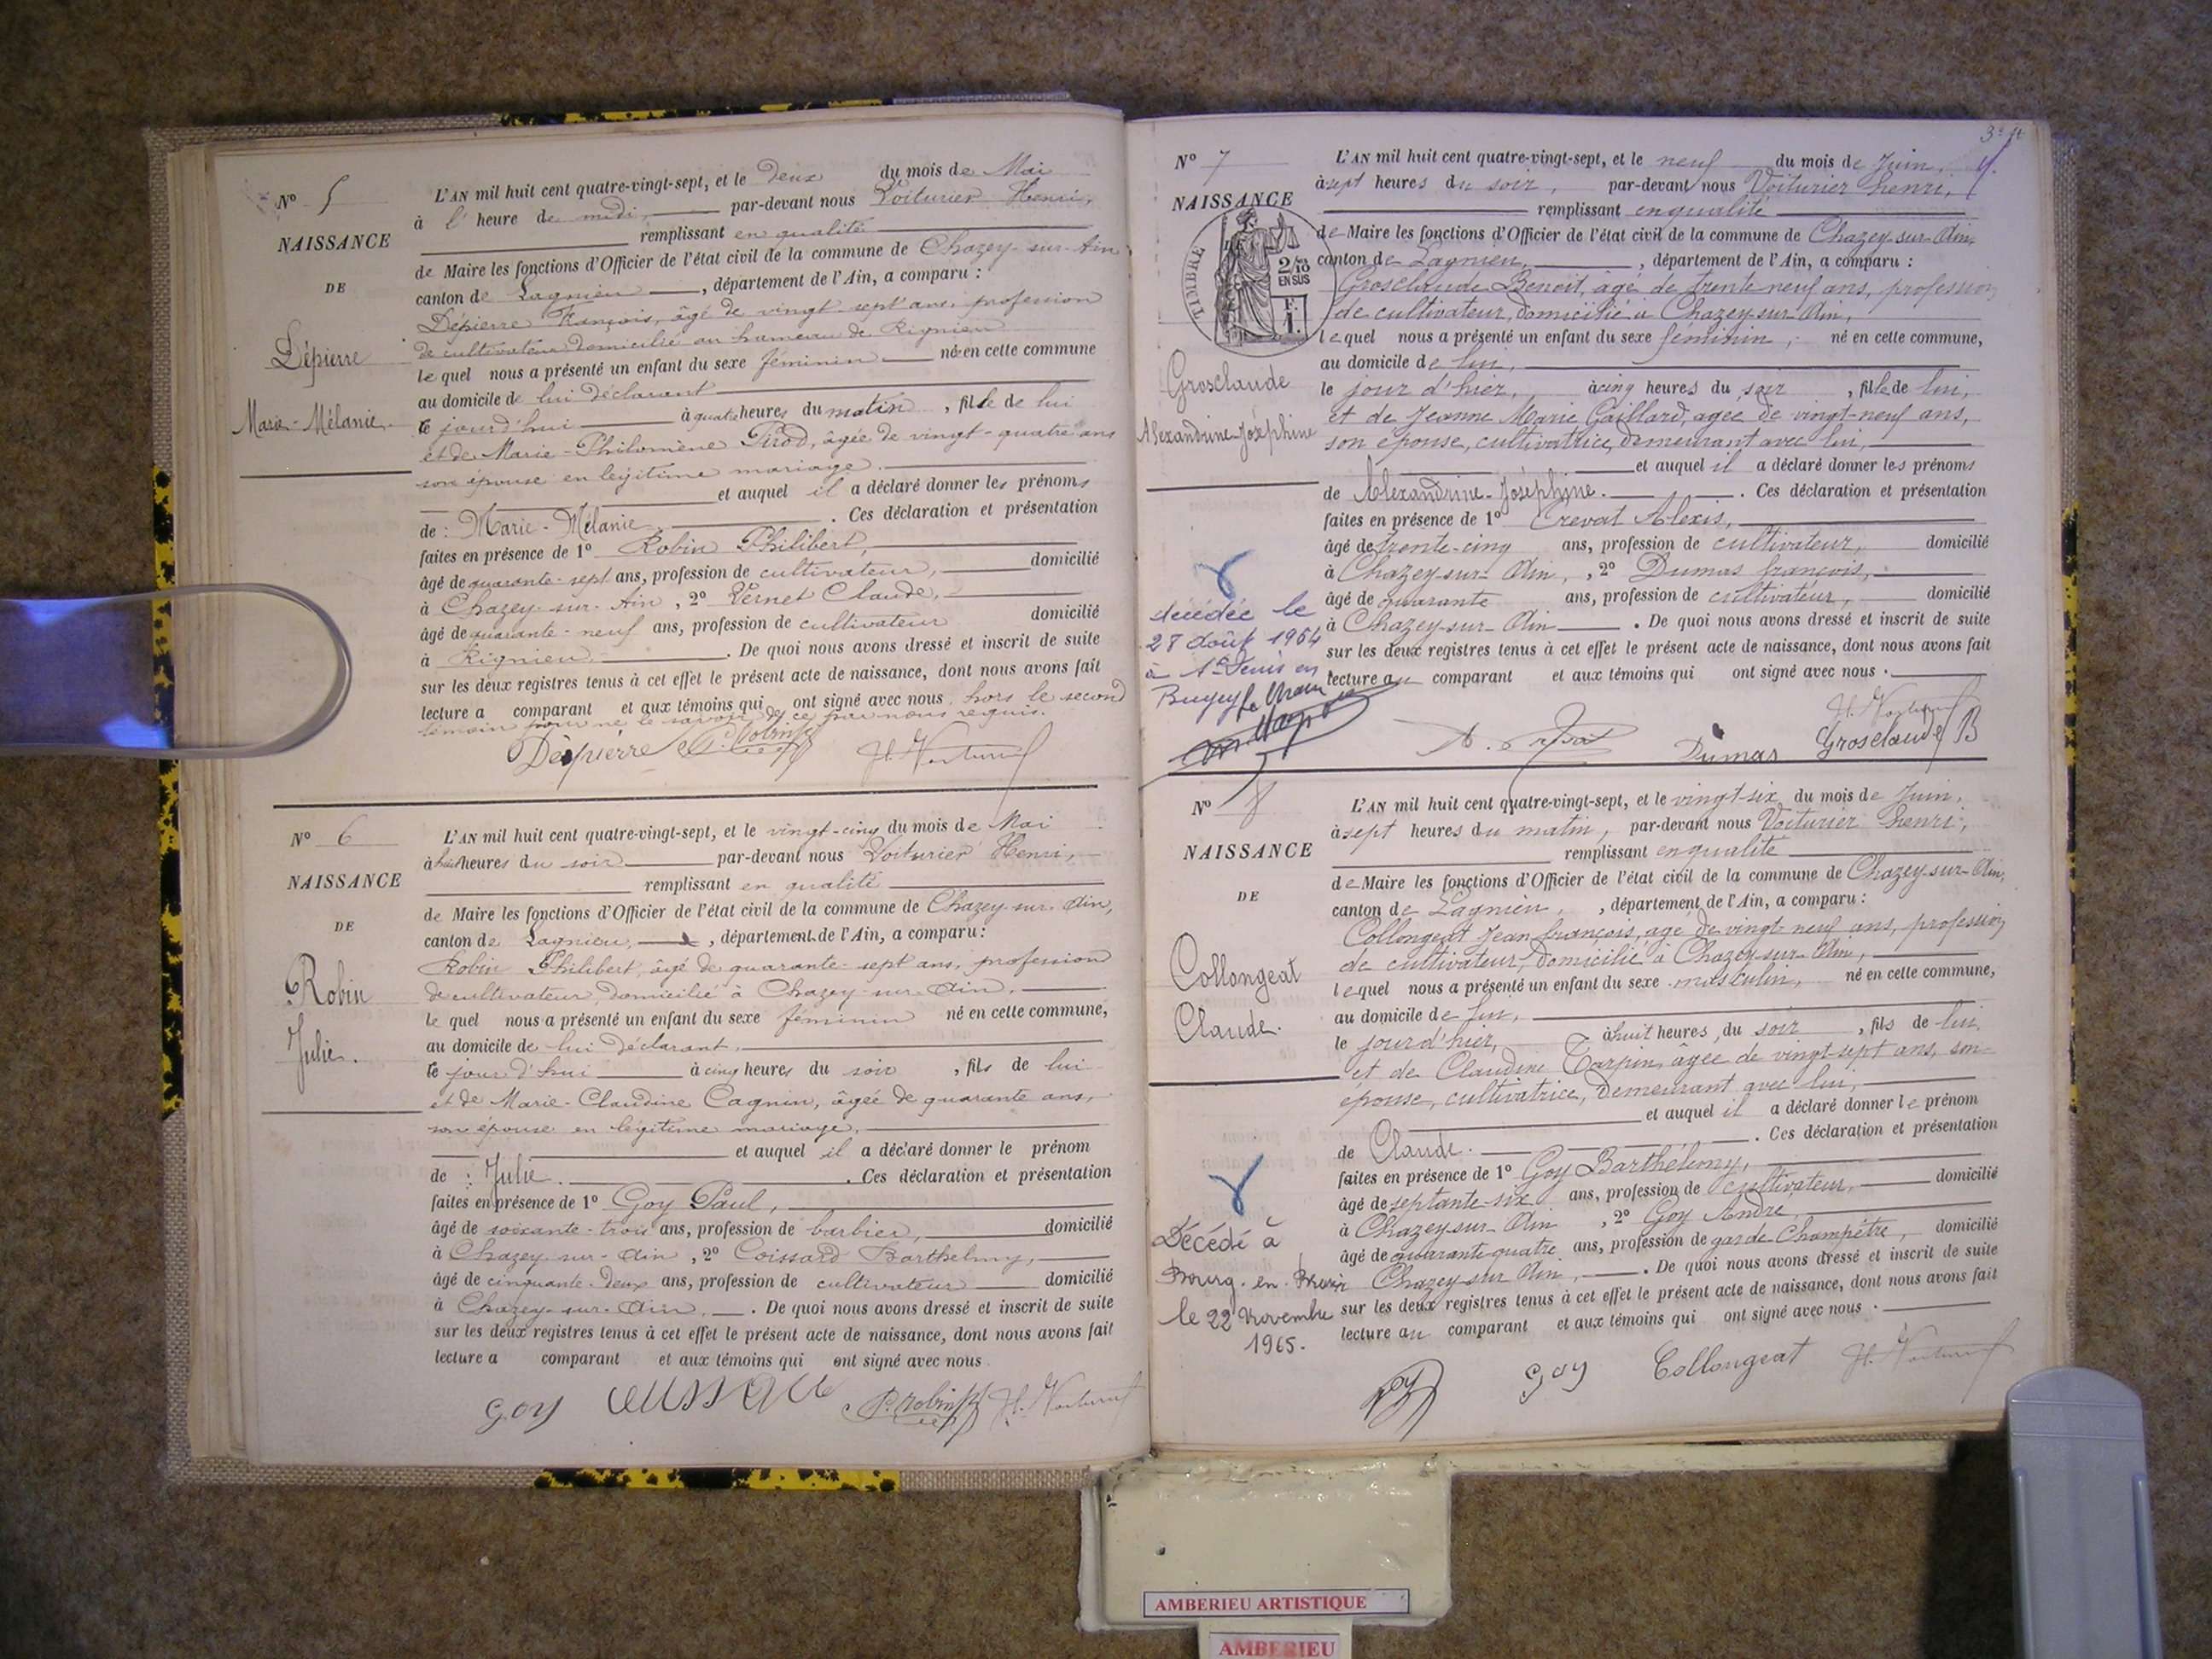 N° 5
NAISSANCE
DE
Dépierre
Marie-Mélanie
L'AN mil huit cent quatre-vingt-sept, et le deux du mois de Mai
à l' heure de midi, par-devant nous Voiturier Henri,
remplissant en qualité
de Maire les fonctions d'Officier de l'état civil de la commune de Chazey-sur-Ain
canton de Lagnieu, département de l'Ain, a comparu :
Dépierre François, âgé de vingt-sept ans, profession
de cultivateur domicilié au hameau de Rignieu
lequel nous a présenté un enfant du sexe féminin né en cette commune
au domicile de lui déclarant
le jourd'hui à quatre heures du matin, fille de lui
et de Marie-Philomène Pirod, âgée de vingt-quatre ans
son épouse en légitime mariage.
et auquel il a déclaré donner les prénoms
de : Marie-Mélanie. Ces déclaration et présentation
faites en présence de 1° Robin Philibert,
âgé de quarante-sept ans, profession de cultivateur, domicilié
à Chazey-sur-Ain, 2° Vernet Claude,
âgé de quarante-neuf ans, profession de cultivateur domicilié
à Rignieu. De quoi nous avons dressé et inscrit de suite
sur les deux registres tenus à cet effet le présent acte de naissance, dont nous avons fait
lecture a comparant et aux témoins qui ont signé avec nous hors le second
témoin pour ne le savoir de ce par nous requis.
Dépierre P. Robin H. Voiturier
N° 6
NAISSANCE
DE
Robin
Julie.
L'AN mil huit cent quatre-vingt-sept, et le vingt-cinq du mois de Mai
à huit heures du soir par-devant nous Voiturier Henri,
remplissant en qualité
de Maire les fonctions d'Officier de l'état civil de la commune de Chazey-sur-Ain,
canton de Lagnieu, département de l'Ain, a comparu :
Robin Philibert, âgé de quarante-sept ans, profession
de cultivateur, domicilié à Chazey-sur-Ain,
le quel nous a présenté un enfant du sexe féminin né en cette commune,
au domicile de lui déclarant,
le jour d'hui à cinq heures du soir, fils de lui
et de Marie-Claudine Cagnin, âgée de quarante ans,
son épouse en légitime mariage,
et auquel il a déclaré donner le prénom
de : Julie. Ces déclaration et présentation
faites en présence de 1° Goy Paul,
âgé de soixante-trois ans, profession de barbier, domicilié
à Chazey-sur-Ain, 2° Coissard Barthelmy,
âgé de cinquante-deux ans, profession de cultivateur domicilié
à Chazey-sur-Ain. De quoi nous avons dressé et inscrit de suite
sur les deux registres tenus à cet effet le présent acte de naissance, dont nous avons fait
lecture a comparant et aux témoins qui ont signé avec nous
goy P. robin H. Voiturier
N° 7
NAISSANCE
DE
TIMBRE
2/10
EN SUS
1 F.
Grosclaude
Alexandrine-Joséphine
décédée le
27 Août 1964
à St Denis en
Bugey Le Maire
L'AN mil huit cent quatre-vingt-sept, et le neuf du mois de Juin,
à sept heures du soir, par-devant nous Voiturier henri,
remplissant en qualité
de Maire les fonctions d'Officier de l'état civil de la commune de Chazey-sur-Ain,
canton de Lagnieu, département de l'Ain, a comparu :
Grosclaude Benoit, âgé de trente neuf ans, profession
de cultivateur, domicilié à Chazey-sur-Ain,
lequel nous a présenté un enfant du sexe féminin, né en cette commune,
au domicile de lui,
le jour d'hier, à cinq heures du soir, fille de lui,
et de Jeanne Marie Gaillard, agée de vingt-neuf ans,
son épouse, cultivatrice, demeurant avec lui,
et auquel il a déclaré donner les prénoms
de Alexandrine-Joséphine. Ces déclaration et présentation
faites en présence de 1° Trevat Alexis,
âgé de trente-cinq ans, profession de cultivateur, domicilié
à Chazey-sur-Ain, 2° Dumas françois,
âgé de quarante ans, profession de cultivateur, domicilié
à Chazey-sur-Ain. De quoi nous avons dressé et inscrit de suite
sur les deux registres tenus à cet effet le présent acte de naissance, dont nous avons fait
lecture au comparant et aux témoins qui ont signé avec nous.
Dumas Grosclaude B H. Voiturier
N° 8
NAISSANCE
DE
Collongeat
Claude.
Décédé à
Bourg-en-Bresse
le 22 Novembre
1965.
L'AN mil huit cent quatre-vingt-sept, et le vingt-six du mois de Juin,
à sept heures du matin, par-devant nous Voiturier henri,
remplissant en qualité
de Maire les fonctions d'Officier de l'état civil de la commune de Chazey-sur-Ain,
canton de Lagnieu, département de l'Ain, a comparu :
Collongeat Jean françois, agé de vingt-neuf ans, profession
de cultivateur, domicilié à Chazey-sur-Ain,
lequel nous a présenté un enfant du sexe masculin, né en cette commune,
au domicile de lui,
le jour d'hier, à huit heures, du soir, fils de lui,
et de Claudine Carpin, âgée de vingt-sept ans, son
épouse, cultivatrice, demeurant avec lui,
et auquel il a déclaré donner le prénom
de Claude. Ces déclaration et présentation
faites en présence de 1° Goy Barthelemy,
âgé de septante-six ans, profession de cultivateur, domicilié
à Chazey-sur-Ain, 2° Goy André,
âgé de quarante-quatre ans, profession de garde-Champêtre, domicilié
Chazey-sur-Ain. De quoi nous avons dressé et inscrit de suite
sur les deux registres tenus à cet effet le présent acte de naissance, dont nous avons fait
lecture au comparant et aux témoins qui ont signé avec nous.
goy Collongeat H. Voiturier
AMBERIEU ARTISTIQUE
AMBERIEU